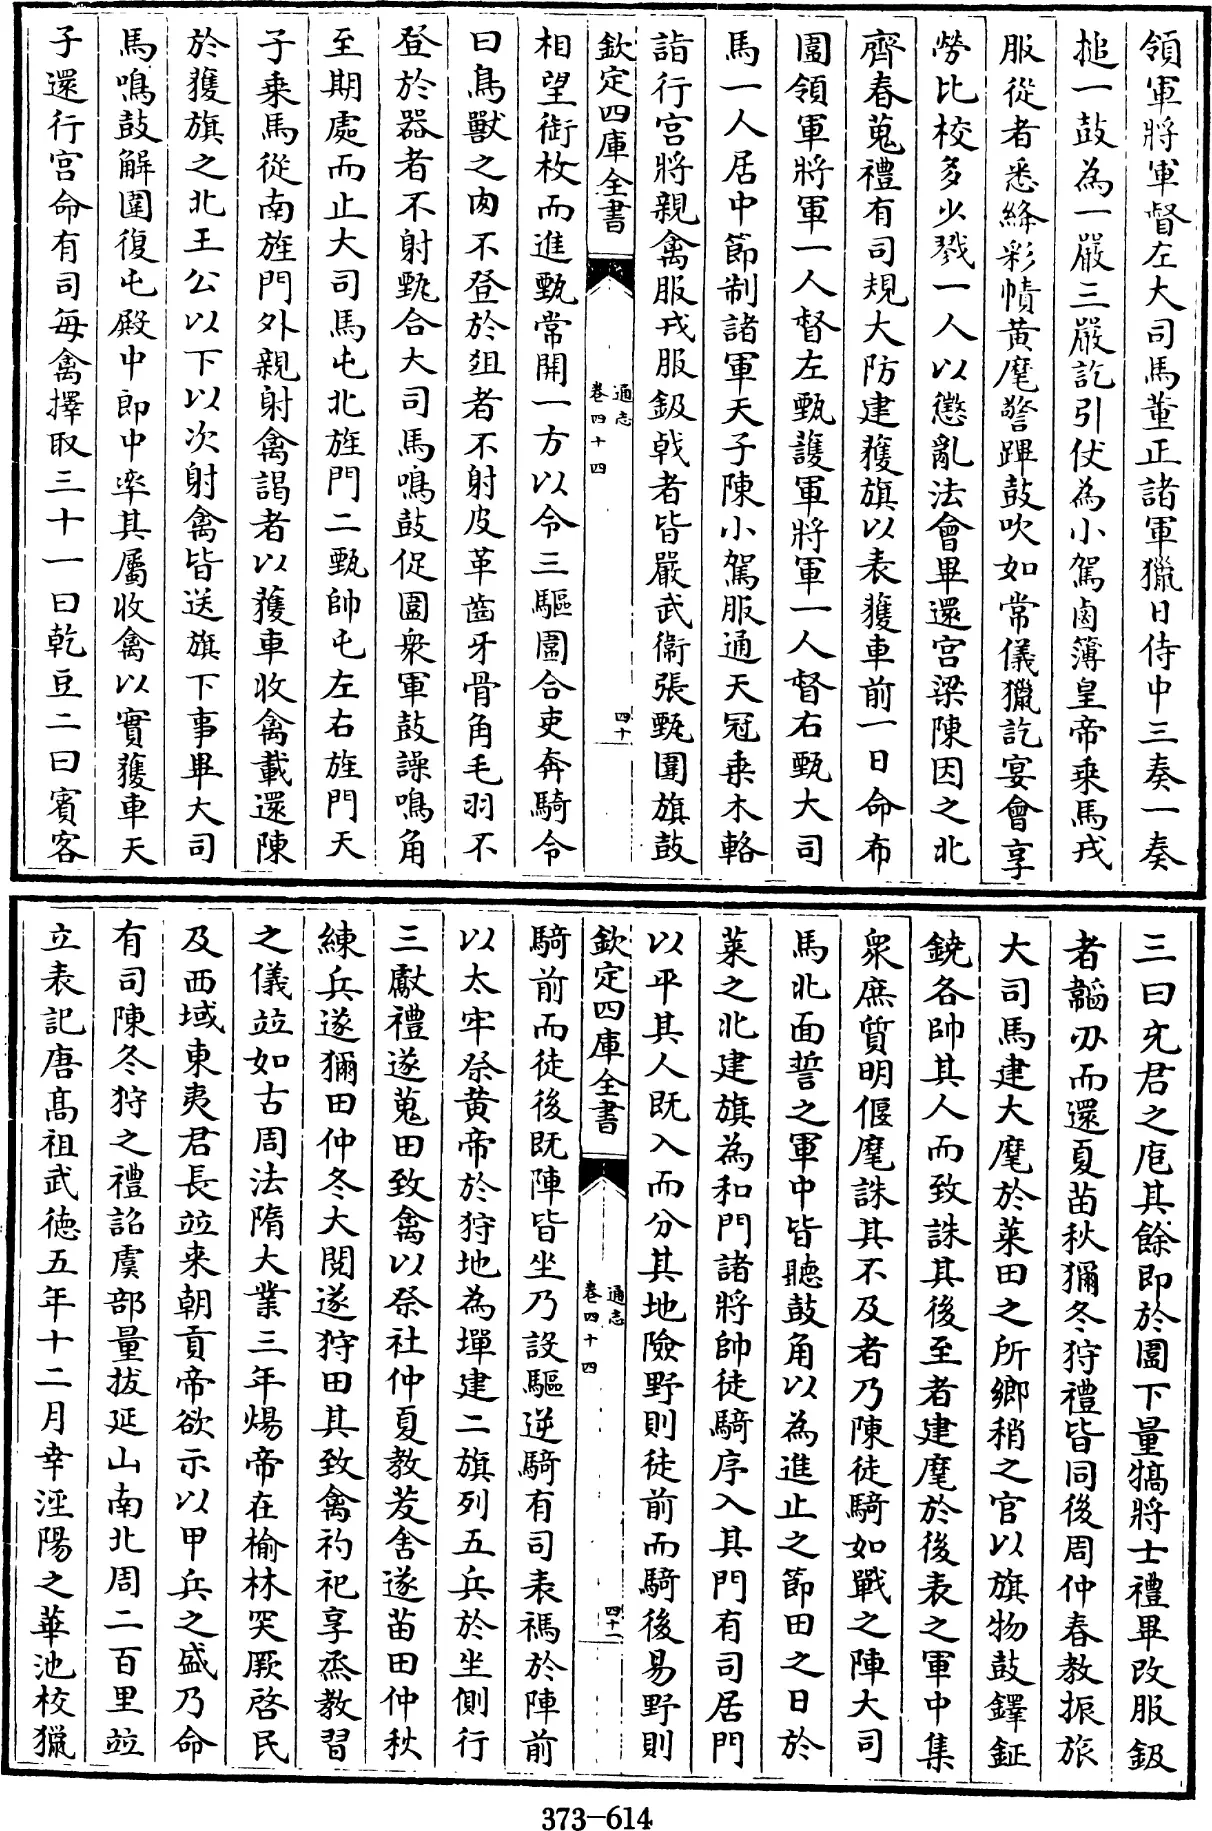 領軍將軍督左大司馬董正諸軍獵日侍中三奏一奏
搥一鼓為一嚴三嚴訖引仗為小駕鹵簿皇帝乗馬戎
服從者悉絳衫幘黄麾警蹕鼓吹如常儀獵訖宴會享
勞比校多少戮一人以懲亂法會畢還宫梁陳因之北
齊春蒐禮有司規大防建獲旗以表獲車前一日命布
圍領軍將軍一人督左甄護軍將軍一人督右甄大司
馬一人居中節制諸軍天子陳小駕服通天冠乗木輅
詣行宫將親禽服戎服鈒㦸者皆嚴武衛張甄圍旗鼓
欽定四庫全書
通志
卷四十四
四十
相望銜枚而進甄常開一方以令三驅圍合吏奔騎令
曰鳥獸之肉不登於爼者不射皮革齒牙骨角毛羽不
登於器者不射甄合大司馬鳴鼓促圍衆軍鼓譟鳴角
至期處而止大司馬屯北旌門二甄帥屯左右旌門天
子乗馬從南旌門外親射禽謁者以獲車收禽載還陳
於獲旗之北王公以下以次射禽皆送旗下事畢大司
馬鳴鼓解圍復屯殿中郎中率其屬收禽以實獲車天
子還行宫命有司每禽擇取三十一曰乾豆二曰賓客
三曰充君之庖其餘即於圍下量犒將士禮畢改服鈒
者韜刃而還夏苗秋獮冬狩禮皆同後周仲春教振旅
大司馬建大麾於萊田之所鄉稍之官以旗物鼓鐸鉦
鐃各帥其人而致誅其後至者建麾於後表之軍中集
衆庶質明偃麾誅其不及者乃陳徒騎如戰之陣大司
馬北面誓之軍中皆聽鼓角以為進止之節田之日於
萊之北建旗為和門諸將帥徒騎序入其門有司居門
以平其人既入而分其地險野則徒前而騎後易野則
欽定四庫全書
通志
卷四十四
四十一
騎前而徒後既陣皆坐乃設驅逆騎有司表禡於陣前
以太牢祭黄帝於狩地為墠建二旗列五兵於坐側行
三獻禮遂蒐田致禽以祭社仲夏教茇舍遂苗田仲秋
練兵遂獮田仲冬大閲遂狩田其致禽礿祀享烝教習
之儀竝如古周法隋大業三年煬帝在榆林突厥啓民
及西域東夷君長竝来朝貢帝欲示以甲兵之盛乃命
有司陳冬狩之禮詔虞部量拔延山南北周二百里竝
立表記唐髙祖武徳五年十二月幸涇陽之華池校獵
373-614